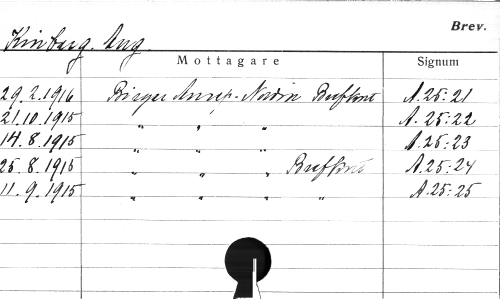 Brev.
Kinberg. Aug.
Mottagare Signum
29.2.1916 Birger Anrep-Nordin Brefkort A.25:21
21.10.1915 " " " A.25:22
14.8.1915 " " " A.25:23
25.8.1915 " " " Brefkort A.25:24
11.9.1915 " " " " A.25:25